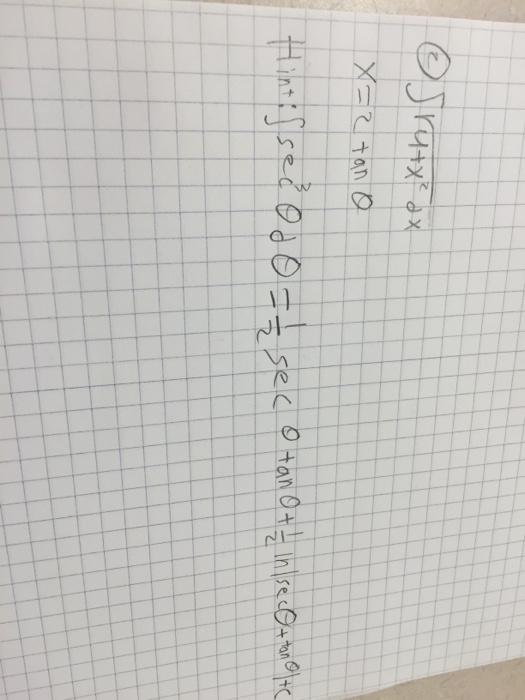 ② ∫ √4+x² dx
x = 2 tan θ
Hint: ∫ sec³ θ dθ = 1/2 sec θ tan θ + 1/2 ln|sec θ + tan θ| + c